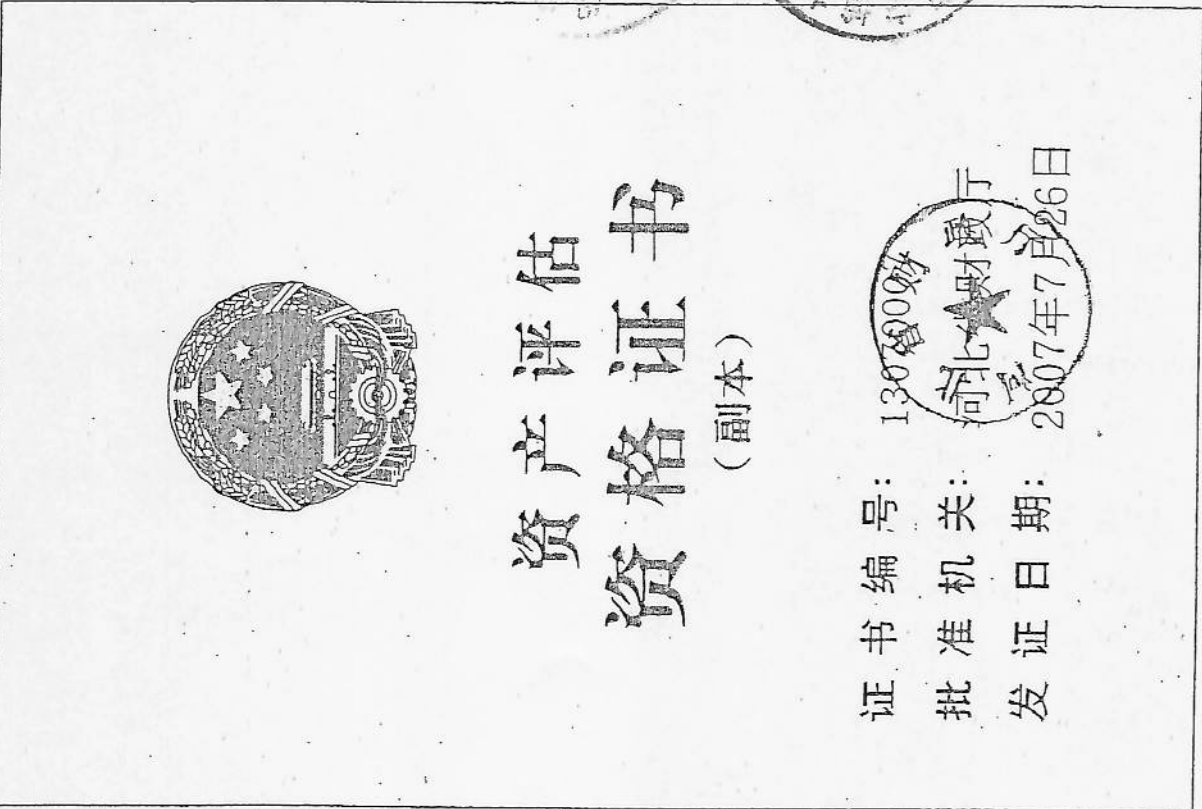 资产评估
资格证书
（副本）
证书编号：
批准机关：河北省财政厅
发证日期：2007年7月26日